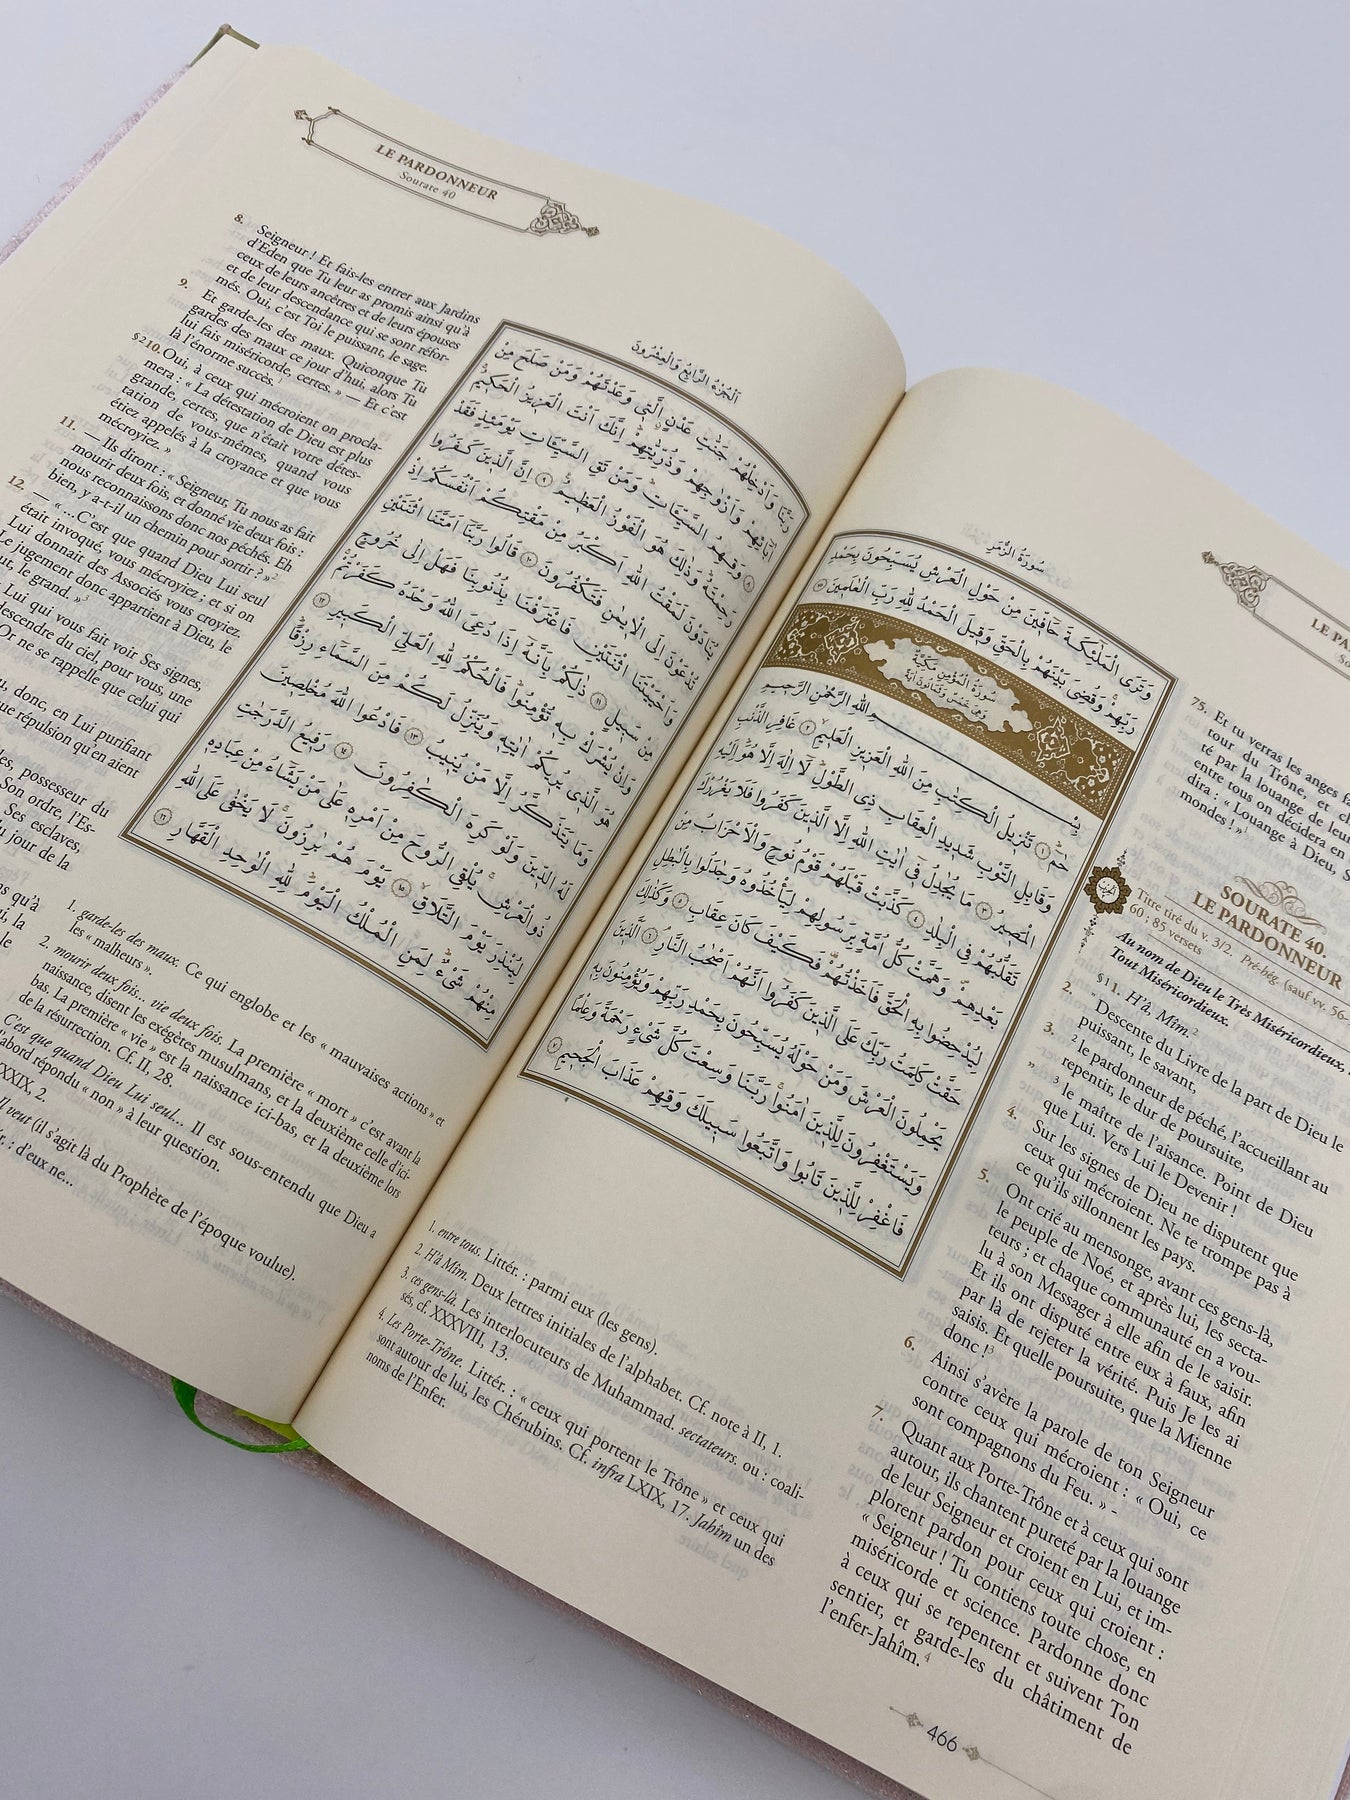 سُورَةُ الزُّمَرِ
وَتَرَى الْمَلٰٓئِكَةَ حَٓافّ۪ينَ مِنْ حَوْلِ الْعَرْشِ يُسَبِّحُونَ بِحَمْدِ
رَبِّهِمْۚ وَقُضِيَ بَيْنَهُمْ بِالْحَقِّ وَق۪يلَ الْحَمْدُ لِلّٰهِ رَبِّ الْعَالَم۪ينَ ﴿٧٥﴾
سُورَةُ الْمُؤْمِنِ مَكِّيَّةٌ
وَهِيَ خَمْسٌ وَثَمَانُونَ اٰيَةً
بِسْمِ اللّٰهِ الرَّحْمٰنِ الرَّح۪يمِ
حٰمٓۚ ﴿١﴾ تَنْز۪يلُ الْكِتَابِ مِنَ اللّٰهِ الْعَز۪يزِ الْعَل۪يمِۙ ﴿٢﴾ غَافِرِ الذَّنْبِ
وَقَابِلِ التَّوْبِ شَد۪يدِ الْعِقَابِ ذِي الطَّوْلِۜ لَٓا اِلٰهَ اِلَّا هُوَۜ اِلَيْهِ
الْمَص۪يرُ ﴿٣﴾ مَا يُجَادِلُ ف۪ٓي اٰيَاتِ اللّٰهِ اِلَّا الَّذ۪ينَ كَفَرُوا فَلَا يَغْرُرْكَ
تَقَلُّبُهُمْ فِي الْبِلَادِ ﴿٤﴾ كَذَّبَتْ قَبْلَهُمْ قَوْمُ نُوحٍ وَالْاَحْزَابُ مِنْ
بَعْدِهِمْ وَهَمَّتْ كُلُّ اُمَّةٍ بِرَسُولِهِمْ لِيَأْخُذُوهُ وَجَادَلُوا بِالْبَاطِلِ
لِيُدْحِضُوا بِهِ الْحَقَّ فَاَخَذْتُهُمْ فَكَيْفَ كَانَ عِقَابِ ﴿٥﴾ وَكَذٰلِكَ
حَقَّتْ كَلِمَتُ رَبِّكَ عَلَى الَّذ۪ينَ كَفَرُٓوا اَنَّهُمْ اَصْحَابُ النَّارِۢ ﴿٦﴾ اَلَّذ۪ينَ
يَحْمِلُونَ الْعَرْشَ وَمَنْ حَوْلَهُ يُسَبِّحُونَ بِحَمْدِ رَبِّهِمْ وَيُؤْمِنُونَ بِه۪
وَيَسْتَغْفِرُونَ لِلَّذ۪ينَ اٰمَنُواۚ رَبَّنَا وَسِعْتَ كُلَّ شَيْءٍ رَحْمَةً وَعِلْمًا
فَاغْفِرْ لِلَّذ۪ينَ تَابُوا وَاتَّبَعُوا سَب۪يلَكَ وَقِهِمْ عَذَابَ الْجَح۪يمِ ﴿٧﴾
LE PA
So
75. Et tu verras les anges fa
tour du Trône, et ch
té par la louange de leur
entre tous on décidera en
dira : « Louange à Dieu, S
mondes ! » ¹
SOURATE 40.
LE PARDONNEUR
Titre tiré du v. 3/2. Pré-hég. (sauf vv. 56-
60 ; 85 versets
Au nom de Dieu le Très Miséricordieux,
Tout Miséricordieux.
§1 1. H'â, Mîm.²
2. Descente du Livre de la part de Dieu le
puissant, le savant,
3. ² le pardonneur de péché, l'accueillant au
repentir, le dur de poursuite,
" ³ le maître de l'aisance. Point de Dieu
que Lui. Vers Lui le Devenir !
4. Sur les signes de Dieu ne disputent que
ceux qui mécroient. Ne te trompe pas à
ce qu'ils sillonnent les pays.
5. Ont crié au mensonge, avant ces gens-là,
le peuple de Noé, et après lui, les secta-
teurs ; et chaque communauté en a vou-
lu à son Messager à elle afin de le saisir.
Et ils ont disputé entre eux à faux, afin
par là de rejeter la vérité. Puis Je les ai
saisis. Et quelle poursuite, que la Mienne
donc !³
6. Ainsi s'avère la parole de ton Seigneur
contre ceux qui mécroient : « Oui, ce
sont compagnons du Feu. » -
7. Quant aux Porte-Trône et à ceux qui sont
autour, ils chantent pureté par la louange
de leur Seigneur et croient en Lui, et im-
plorent pardon pour ceux qui croient :
« Seigneur ! Tu contiens toute chose, en
miséricorde et science. Pardonne donc
à ceux qui se repentent et suivent Ton
sentier, et garde-les du châtiment de
l'enfer-Jahîm. ⁴
1. entre tous. Littér. : parmi eux (les gens).
2. H'â Mîm. Deux lettres initiales de l'alphabet. Cf. note à II, 1.
3. ces gens-là. Les interlocuteurs de Muhammad. sectateurs. ou : coali-
sés, cf. XXXVIII, 13.
4. Les Porte-Trône. Littér. : « ceux qui portent le Trône » et ceux qui
sont autour de lui, les Chérubins. Cf. infra LXIX, 17. Jahîm un des
noms de l'Enfer.
466
LE PARDONNEUR
Sourate 40
8. Seigneur ! Et fais-les entrer aux Jardins
d'Eden que Tu leur as promis ainsi qu'à
ceux de leurs ancêtres et de leurs épouses
et de leur descendance qui se sont réfor-
més. Oui, c'est Toi le puissant, le sage.
9. Et garde-les des maux. Quiconque Tu
gardes des maux ce jour d'hui, alors Tu
lui fais miséricorde, certes. » — Et c'est
là l'énorme succès.¹
§2 10. Oui, à ceux qui mécroient on procla-
mera : « La détestation de Dieu est plus
grande, certes, que n'était votre détes-
tation de vous-mêmes, quand vous
étiez appelés à la croyance et que vous
mécroyiez. »
11. — Ils diront : « Seigneur, Tu nous as fait
mourir deux fois, et donné vie deux fois :
nous reconnaissons donc nos péchés. Eh
bien, y a-t-il un chemin pour sortir ? »²
12. — « ...C'est que quand Dieu Lui seul
était invoqué, vous mécroyiez ; et si on
Lui donnait des Associés vous croyiez.
Le jugement donc appartient à Dieu, le
ut, le grand. »³
Lui qui vous fait voir Ses signes,
descendre du ciel, pour vous, une
Or ne se rappelle que celui qui
u, donc, en Lui purifiant
que répulsion qu'en aient
possesseur du
Son ordre, l'Es-
Ses esclaves,
u jour de la
qu'à
la
le
اَلْجُزْءُ الرَّابِعُ وَالْعِشْرُونَ
رَبَّنَا وَاَدْخِلْهُمْ جَنَّاتِ عَدْنٍۨ الَّت۪ي وَعَدْتَهُمْ وَمَنْ صَلَحَ مِنْ
اٰبَٓائِهِمْ وَاَزْوَاجِهِمْ وَذُرِّيَّاتِهِمْۜ اِنَّكَ اَنْتَ الْعَز۪يزُ الْحَك۪يمُۙ ﴿٨﴾
وَقِهِمُ السَّيِّـَٔاتِۜ وَمَنْ تَقِ السَّيِّـَٔاتِ يَوْمَئِذٍ فَقَدْ
رَحِمْتَهُۜ وَذٰلِكَ هُوَ الْفَوْزُ الْعَظ۪يمُ۟ ﴿٩﴾ اِنَّ الَّذ۪ينَ كَفَرُوا
يُنَادَوْنَ لَمَقْتُ اللّٰهِ اَكْبَرُ مِنْ مَقْتِكُمْ اَنْفُسَكُمْ اِذْ
تُدْعَوْنَ اِلَى الْا۪يمَانِ فَتَكْفُرُونَ ﴿١٠﴾ قَالُوا رَبَّنَٓا اَمَتَّنَا اثْنَتَيْنِ
وَاَحْيَيْتَنَا اثْنَتَيْنِ فَاعْتَرَفْنَا بِذُنُوبِنَا فَهَلْ اِلٰى خُرُوجٍ
مِنْ سَب۪يلٍ ﴿١١﴾ ذٰلِكُمْ بِاَنَّهُٓ اِذَا دُعِيَ اللّٰهُ وَحْدَهُ كَفَرْتُمْۚ
وَاِنْ يُشْرَكْ بِه۪ تُؤْمِنُواۜ فَالْحُكْمُ لِلّٰهِ الْعَلِيِّ الْكَب۪يرِ ﴿١٢﴾
هُوَ الَّذ۪ي يُر۪يكُمْ اٰيَاتِه۪ وَيُنَزِّلُ لَكُمْ مِنَ السَّمَٓاءِ رِزْقًاۜ
وَمَا يَتَذَكَّرُ اِلَّا مَنْ يُن۪يبُ ﴿١٣﴾ فَادْعُوا اللّٰهَ مُخْلِص۪ينَ
لَهُ الدّ۪ينَ وَلَوْ كَرِهَ الْكَافِرُونَ ﴿١٤﴾ رَف۪يعُ الدَّرَجَاتِ
ذُو الْعَرْشِۚ يُلْقِي الرُّوحَ مِنْ اَمْرِه۪ عَلٰى مَنْ يَشَٓاءُ مِنْ عِبَادِه۪
لِيُنْذِرَ يَوْمَ التَّلَاقِۙ ﴿١٥﴾ يَوْمَ هُمْ بَارِزُونَۚ لَا يَخْفٰى عَلَى اللّٰهِ
مِنْهُمْ شَيْءٌۜ لِمَنِ الْمُلْكُ الْيَوْمَۜ لِلّٰهِ الْوَاحِدِ الْقَهَّارِ ﴿١٦﴾
1. garde-les des maux. Ce qui englobe et les « mauvaises actions » et
les « malheurs ».
2. mourir deux fois... vie deux fois. La première « mort » c'est avant la
naissance, disent les exégètes musulmans, et la deuxième celle d'ici-
bas. La première « vie » est la naissance ici-bas, et la deuxième lors
de la résurrection. Cf. II, 28.
C'est que quand Dieu Lui seul... Il est sous-entendu que Dieu a
d'abord répondu « non » à leur question.
XXIX, 2.
Il veut (il s'agit là du Prophète de l'époque voulue).
r. : d'eux ne...